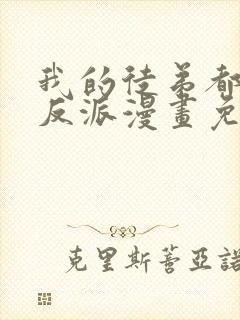 我的徒弟都
反派漫畫免
克里斯蒂亞諾